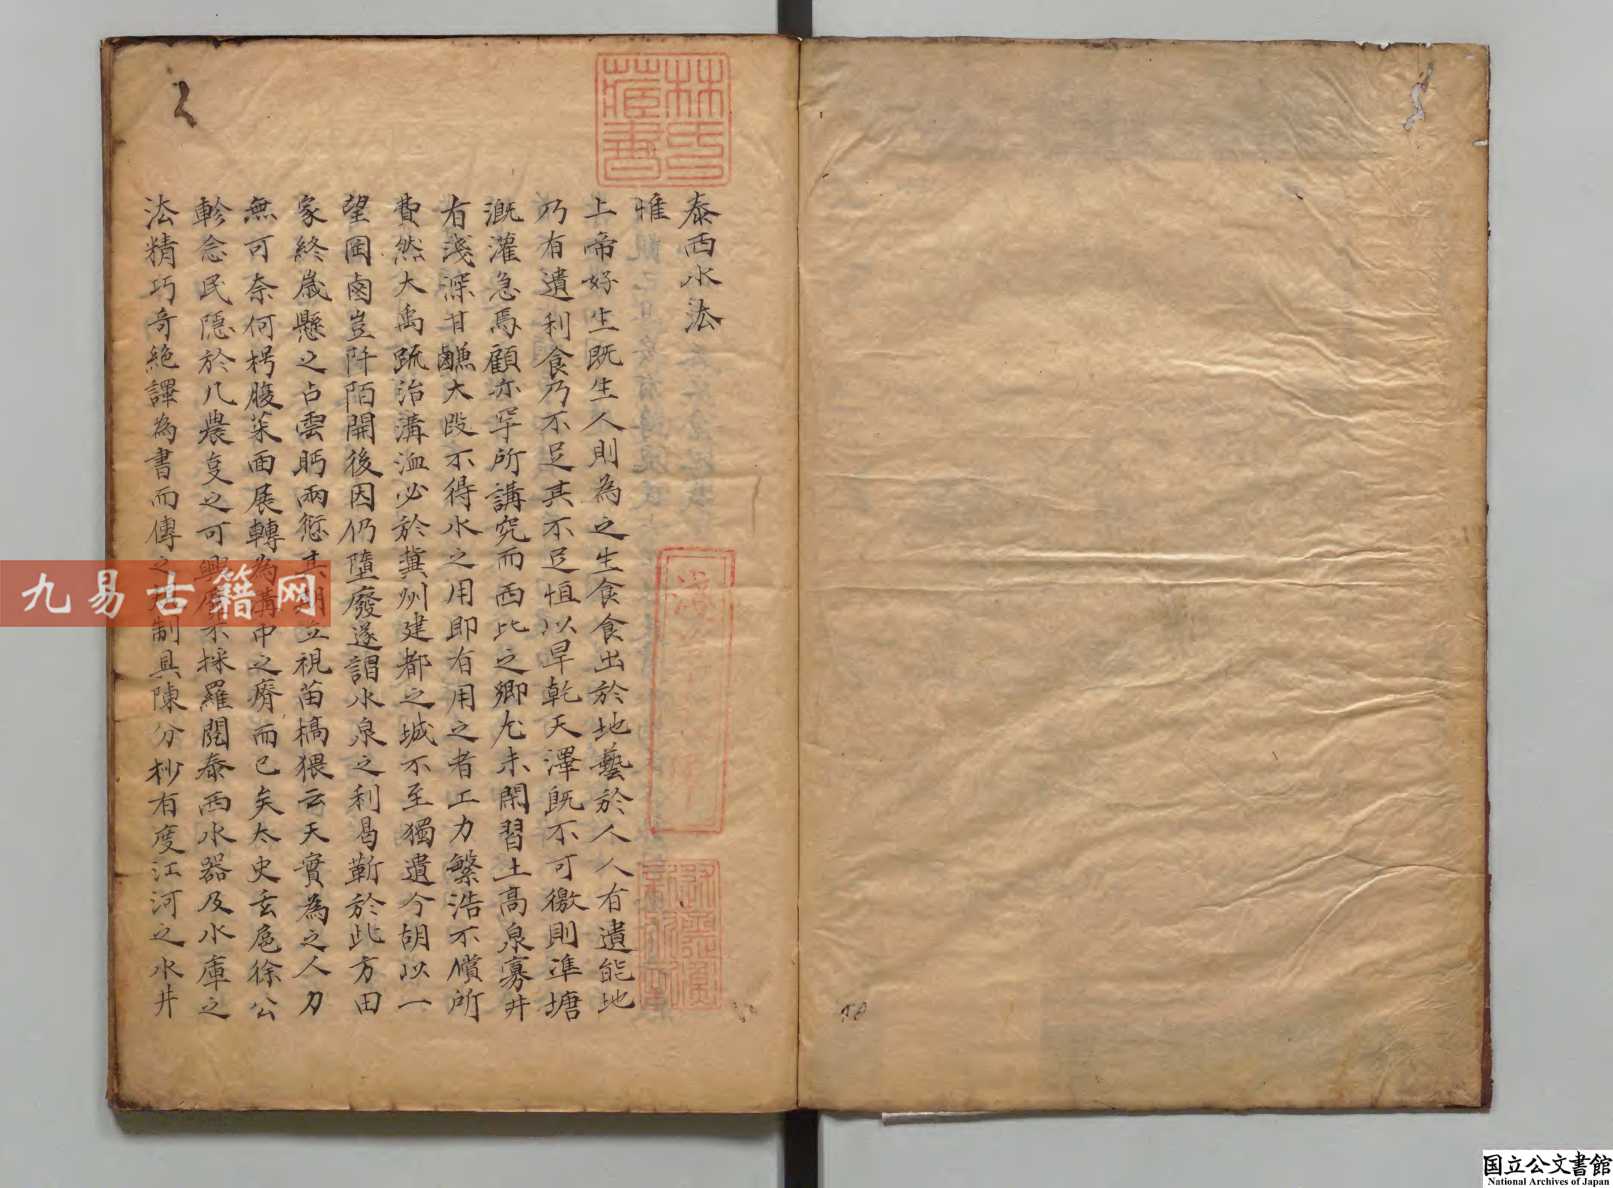 林氏藏書
泰西水法
惟
上帝好生既生人則為之生食食出於地藝於人人有遺能地
乃有遺利食乃不足其不足恒以旱乾天澤既不可徼則準塘
漑灌急焉顧亦罕所講究而西北之鄉尤未閑習土高泉寡井
有淺深甘鹻大段不得水之用即有用之者工力繁浩不償所
費然大禹䟽治溝洫必於冀州建都之城不至獨遺今胡以一
望囷鹵豈阡陌開後因仍墮廢遂謂水泉之利曷靳於此方田
家終歲懸之占雲眄雨愆其期立視苗槁猥云天實為之人力
無可奈何枵腹菜面展轉為溝中之瘠而已矣太史玄扈徐公
軫念民隱於凡農之可興採羅閱泰西水器及水庫之
法精巧奇絶譯為書而傳之制具陳分杪有度江河之水井
九易古籍网
国立公文書館
National Archives of Japan